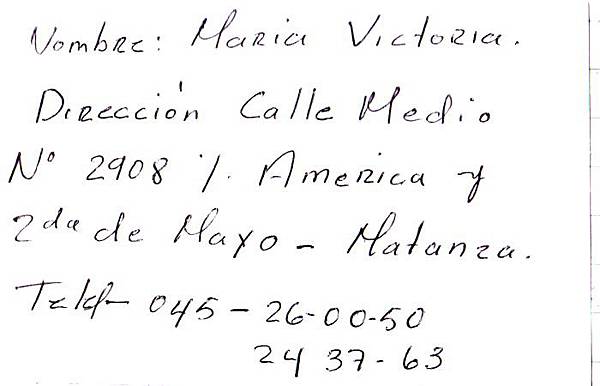 Nombre: Maria Victoria.
Dirección Calle Medio
Nº 2908 %. America y
2da de Mayo - Matanza.
Telf- 045 - 26-00-50
24 37-63